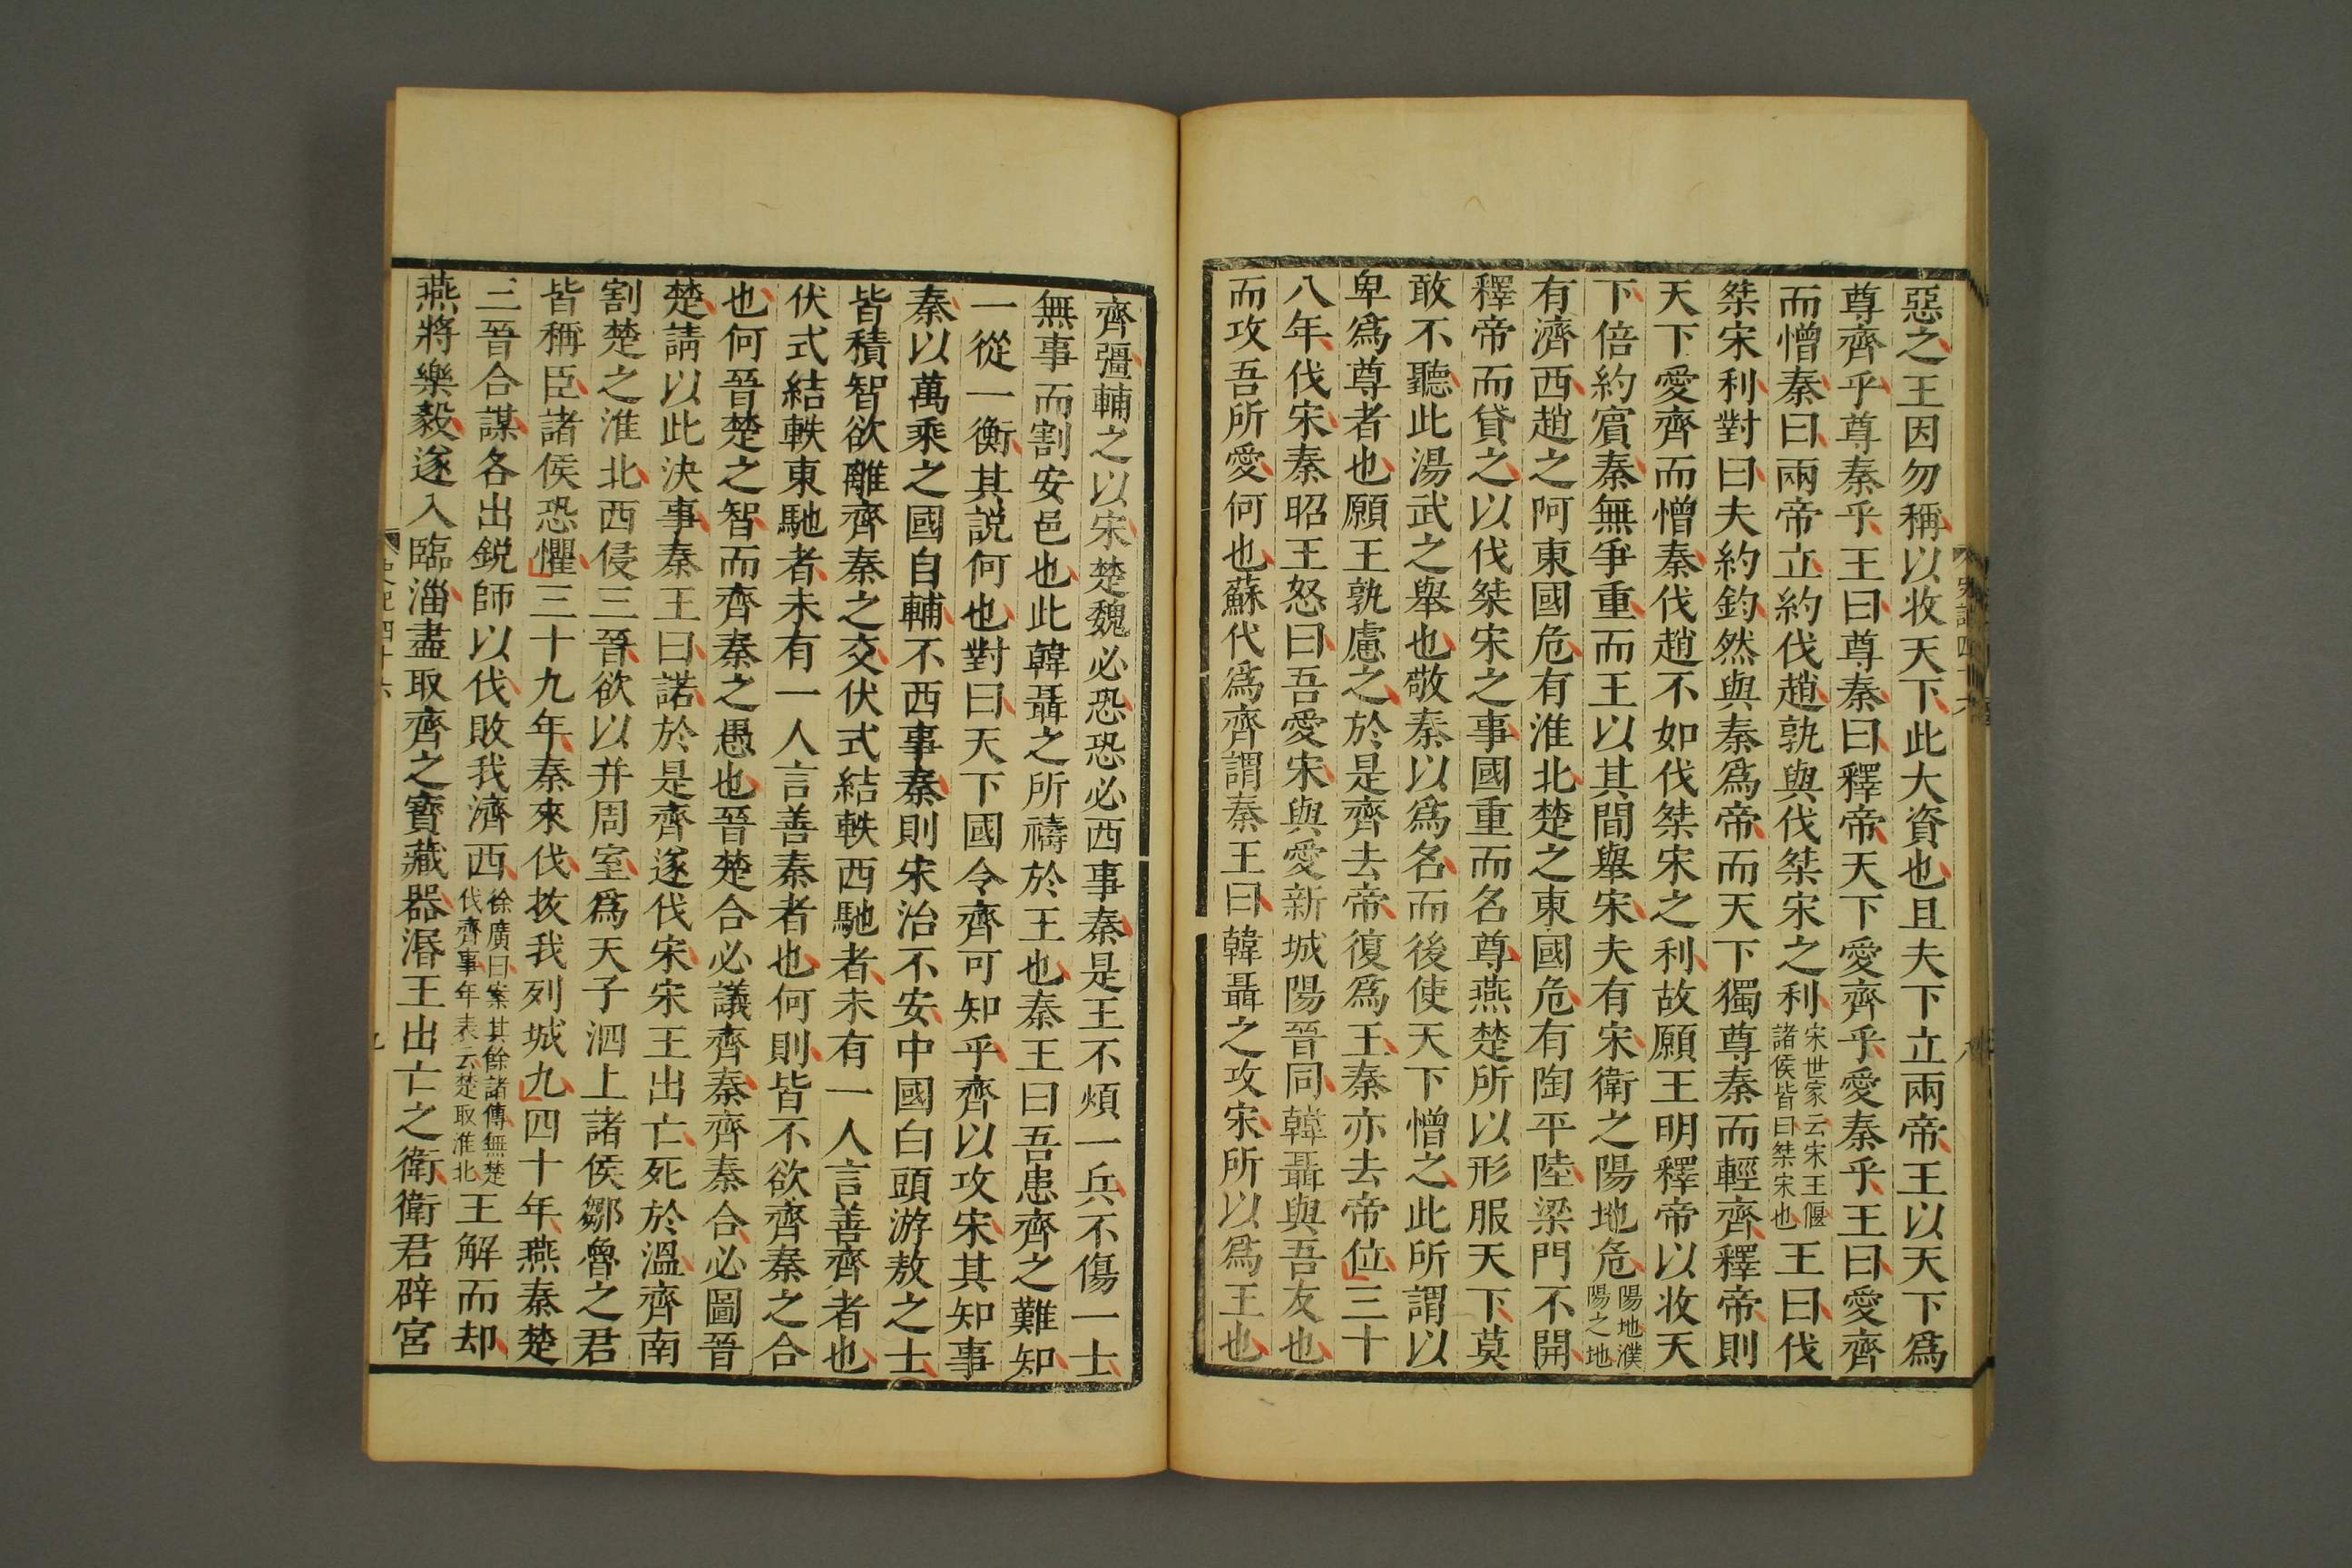 惡之王因勿稱以收天下此大資也且夫下立兩帝王以天下爲
尊齊乎尊秦乎王曰尊秦曰釋帝天下愛齊乎愛秦乎王曰愛齊
而憎秦曰兩帝立約伐趙孰與伐桀宋之利宋世家云宋王偃諸侯皆曰桀宋也王曰伐
桀宋利對曰夫約鈞然與秦爲帝而天下獨尊秦而輕齊釋帝則
天下愛齊而憎秦伐趙不如伐桀宋之利故願王明釋帝以收天
下倍約賓秦無爭重而王以其間舉宋夫有宋衛之陽地危陽地濮陽之地
有濟西趙之阿東國危有淮北楚之東國危有陶平陸梁門不開
釋帝而貸之以伐桀宋之事國重而名尊燕楚所以形服天下莫
敢不聽此湯武之舉也敬秦以爲名而後使天下憎之此所謂以
卑爲尊者也願王孰慮之於是齊去帝復爲王秦亦去帝位三十
八年伐宋秦昭王怒曰吾愛宋與愛新城陽晉同韓聶與吾友也
而攻吾所愛何也蘇代爲齊謂秦王曰韓聶之攻宋所以爲王也
齊彊輔之以宋楚魏必恐恐必西事秦是王不煩一兵不傷一士
無事而割安邑也此韓聶之所禱於王也秦王曰吾患齊之難知
一從一衡其説何也對曰天下國令齊可知乎齊以攻宋其知事
秦以萬乘之國自輔不西事秦則宋治不安中國白頭游敖之士
皆積智欲離齊秦之交伏式結軼西馳者未有一人言善齊者也
伏式結軼東馳者未有一人言善秦者也何則皆不欲齊秦之合
也何晉楚之智而齊秦之愚也晉楚合必議齊秦齊秦合必圖晉
楚請以此決事秦王曰諾於是齊遂伐宋宋王出亡死於溫齊南
割楚之淮北西侵三晉欲以并周室爲天子泗上諸侯鄒魯之君
皆稱臣諸侯恐懼三十九年秦來伐拔我列城九四十年燕秦楚
三晉合謀各出鋭師以伐敗我濟西徐廣曰案其餘諸傳無楚伐齊事年表云楚取淮北王解而却
燕將樂毅遂入臨淄盡取齊之寶藏器湣王出亡之衛衛君辟宮
史記四十六
九